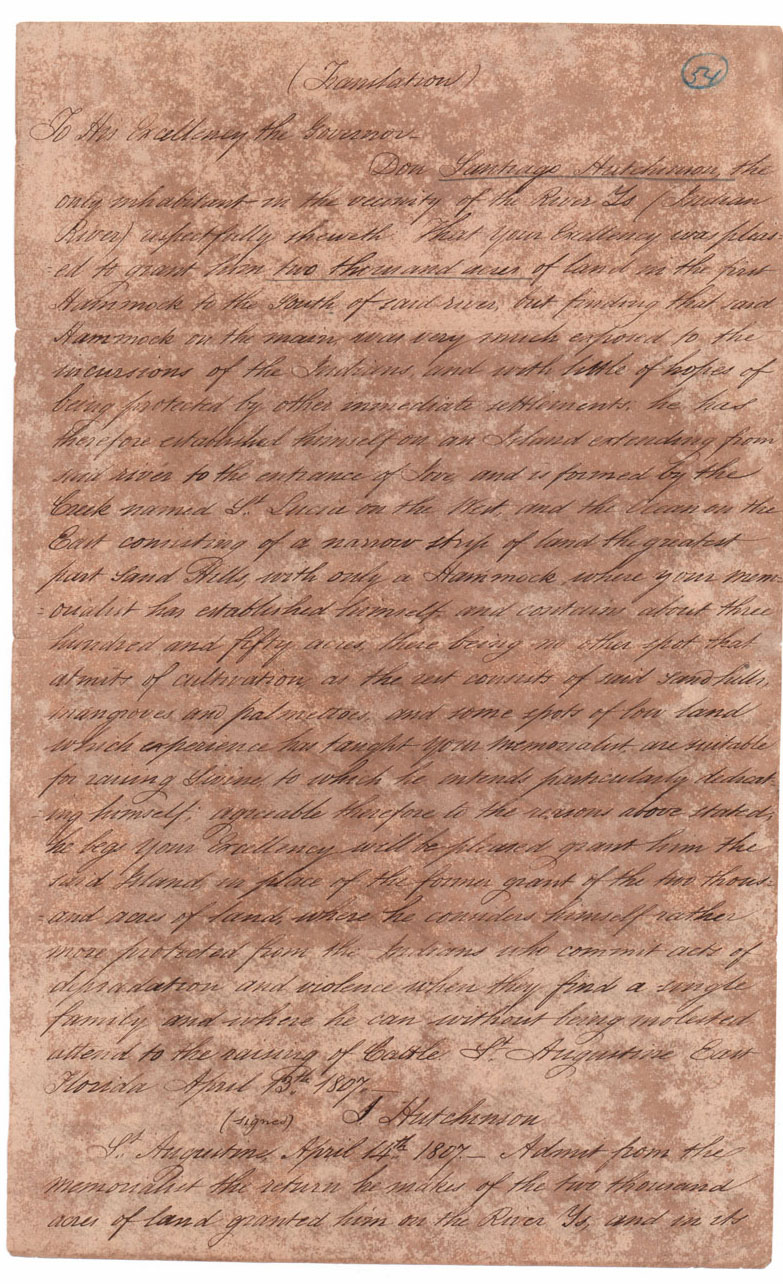 (Translation)
54
To His Excellency the Governor_
Don Santiago Hutchinson, the
only inhabitant in the vicinity of the River Ys (Indian
River) respectfully sheweth That your Excellency was pleas-
-ed to grant him two thousand acres of land in the first
Hammock to the South of said river, but finding that said
Hammock on the main, was very much exposed to the
incursions of the Indians, and with little of hopes of
being protected by other immediate settlements. he has
therefore established himself on an Island extending from
said river to the entrance of Jove, and is formed by the
Creek named St. Lucia on the West, and the Ocean on the
East consisting of a narrow strip of land the greatest
part Sand Hills, with only a Hammock, where your mem-
-orialist has established himself, and contains about three
hundred and fifty acres, there being no other spot that
admits of cultivation, as the rest consists of said sand hills,
mangroves, and palmettoes, and some spots of low land
which experience has taught your memorialist are suitable
for raising Swine, to which he intends particularly dedicat-
-ing himself; agreable therefore to the reasons above stated,
he begs your Excellency will be pleased grant him the
said Island, in place of the former grant of the two thous-
-and acres of land, where he considers himself rather
more protected from the Indians who commit acts of
depradation and violence when they find a single
family and where he can without being molested
attend to the raising of Cattle St. Augustine East
Florida April 13th 1807_
(signed) J Hutchinson
St. Augustine, April 14th 1807_ Admit from the
memorialist the return he makes of the two thousand
acres of land granted him on the River Ys, and in its